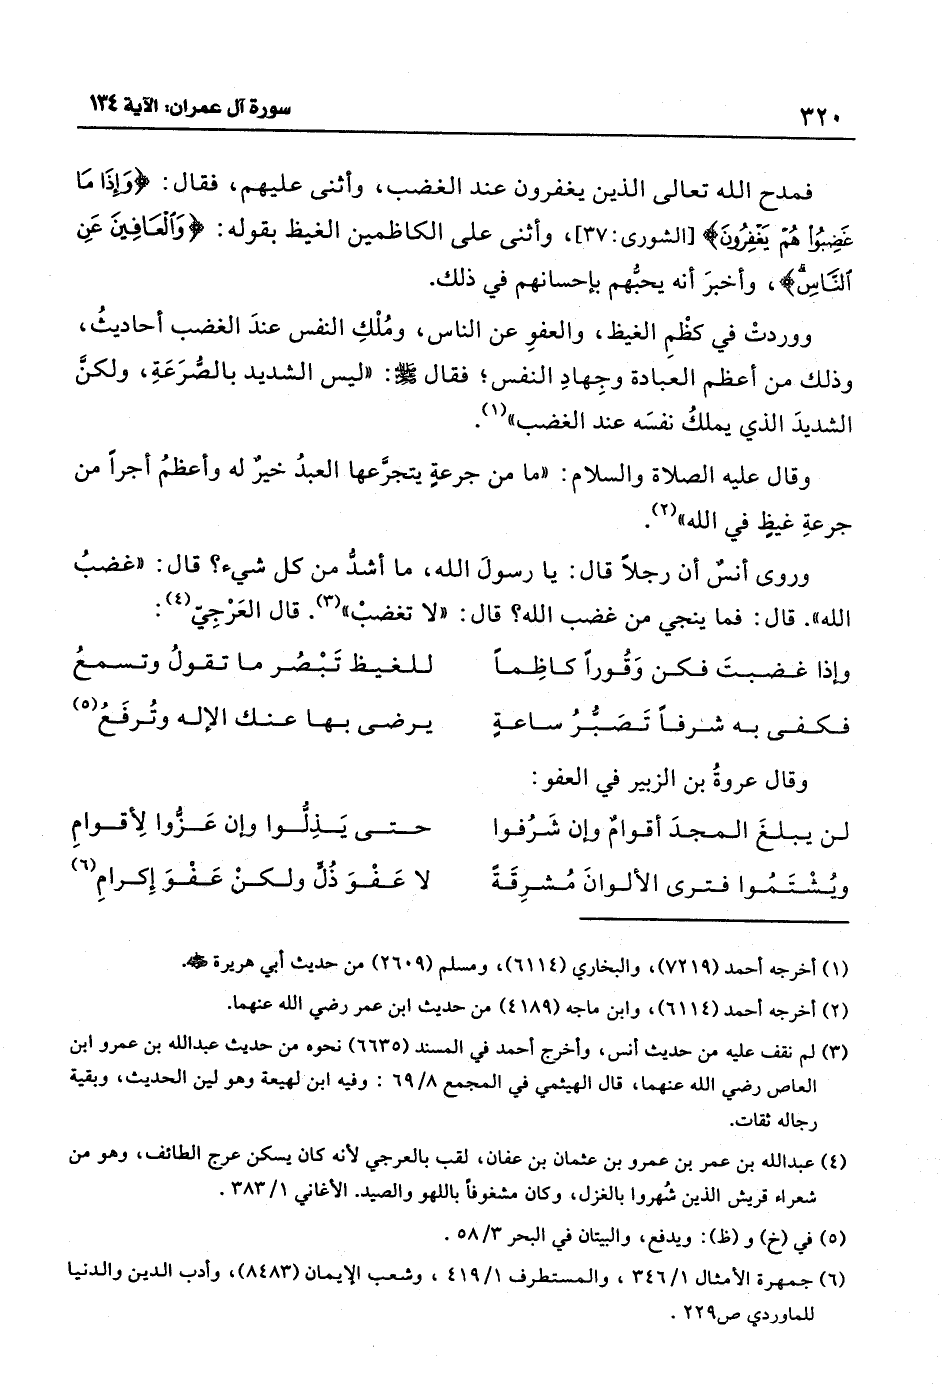 ٣٢٠
سورة آل عمران: الآية ١٣٤
فمدح الله تعالى الذين يغفرون عند الغضب، وأثنى عليهم، فقال: ﴿وَإِذَا مَا
غَضِبُوا۟ هُمْ يَغْفِرُونَ﴾ [الشورى: ٣٧]، وأثنى على الكاظمين الغيظ بقوله: ﴿وَٱلْعَافِينَ عَنِ
ٱلنَّاسِۗ﴾، وأخبرَ أنه يحبُّهم بإحسانهم في ذلك.
ووردتْ في كظْمِ الغيظ، والعفوِ عن الناس، ومُلْكِ النفس عندَ الغضب أحاديثُ،
وذلك من أعظم العبادة وجِهادِ النفس؛ فقال ﷺ: «ليس الشديد بالصُّرَعَةِ، ولكنَّ
الشديدَ الذي يملكُ نفسَه عند الغضب»(١).
وقال عليه الصلاة والسلام: «ما من جرعةٍ يتجرَّعها العبدُ خيرٌ له وأعظمُ أجراً من
جرعةِ غيظٍ في الله»(٢).
وروى أنسٌ أن رجلاً قال: يا رسولَ الله، ما أشدُّ من كل شيء؟ قال: «غضبُ
الله». قال: فما ينجي من غضب الله؟ قال: «لا تغضبْ»(٣). قال العَرْجِيّ(٤):
وإذا غضبتَ فكن وَقُوراً كاظِماً للغيظ تَبْصُر ما تقولُ وتسمعُ
فكفى به شرفاً تَصَبُّرُ ساعةٍ يرضى بها عنك الإله وتُرفَعُ(٥)
وقال عروةُ بن الزبير في العفو:
لن يبلغَ المجدَ أقوامٌ وإن شَرُفوا حتى يَذِلُّوا وإن عَزُّوا لِأقوامِ
ويُشْتَمُوا فترى الألوانَ مُشرِقَةً لا عَفْوَ ذُلٍّ ولكنْ عَفْوَ إكرامِ(٦)
(١) أخرجه أحمد (٧٢١٩)، والبخاري (٦١١٤)، ومسلم (٢٦٠٩) من حديث أبي هريرة ﷺ.
(٢) أخرجه أحمد (٦١١٤)، وابن ماجه (٤١٨٩) من حديث ابن عمر رضي الله عنهما.
(٣) لم نقف عليه من حديث أنس، وأخرج أحمد في المسند (٦٦٣٥) نحوه من حديث عبدالله بن عمرو ابن
العاص رضي الله عنهما، قال الهيثمي في المجمع ٦٩/٨ : وفيه ابن لهيعة وهو لين الحديث، وبقية
رجاله ثقات.
(٤) عبدالله بن عمر بن عمرو بن عثمان بن عفان، لقب بالعرجي لأنه كان يسكن عرج الطائف، وهو من
شعراء قريش الذين شُهروا بالغزل، وكان مشغوفاً باللهو والصيد. الأغاني ٣٨٣/١ .
(٥) في (خ) و (ظ): ويدفع، والبيتان في البحر ٥٨/٣ .
(٦) جمهرة الأمثال ٣٤٦/١ ، والمستطرف ٤١٩/١ ، وشعب الإيمان (٨٤٨٣)، وأدب الدين والدنيا
للماوردي ص٢٢٩ .